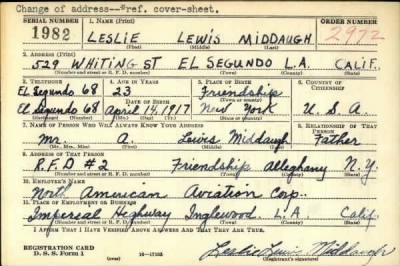 Change of address--*ref. cover-sheet.
SERIAL NUMBER 1. NAME (Print) ORDER NUMBER
1982 LESLIE LEWIS MIDDAUGH 2972
(First) (Middle) (Last)
2. ADDRESS (Print)
529 WHITING ST EL SEGUNDO L.A. CALIF.
(Number and street or R. F. D. number) (Town) (County) (State)
3. TELEPHONE 4. AGE IN YEARS 5. PLACE OF BIRTH 6. COUNTRY OF CITIZENSHIP
El Segundo 68 23 Friendship
DATE OF BIRTH (Town or county)
El Segundo 68 April 14, 1917 New York U. S. A.
(Mo.) (Day) (Yr.) (State or country)
7. NAME OF PERSON WHO WILL ALWAYS KNOW YOUR ADDRESS 8. RELATIONSHIP OF THAT PERSON
Mr. A. Lewis Middaugh Father
(Mr., Mrs., Miss) (First) (Middle) (Last)
9. ADDRESS OF THAT PERSON
R.F.D #2 Friendship Alleghany N.Y.
(Number and street or R. F. D. number) (Town) (County) (State)
10. EMPLOYER'S NAME
North American Aviation Corp.
11. PLACE OF EMPLOYMENT OR BUSINESS
Impereal Highway Inglewood. L.A Calif.
(Number and street or R. F. D. number) (Town) (County) (State)
I AFFIRM THAT I HAVE VERIFIED ABOVE ANSWERS AND THAT THEY ARE TRUE.
REGISTRATION CARD
D. S. S. Form 1 Leslie Lewis Middaugh
(over) (Registrant's signature)